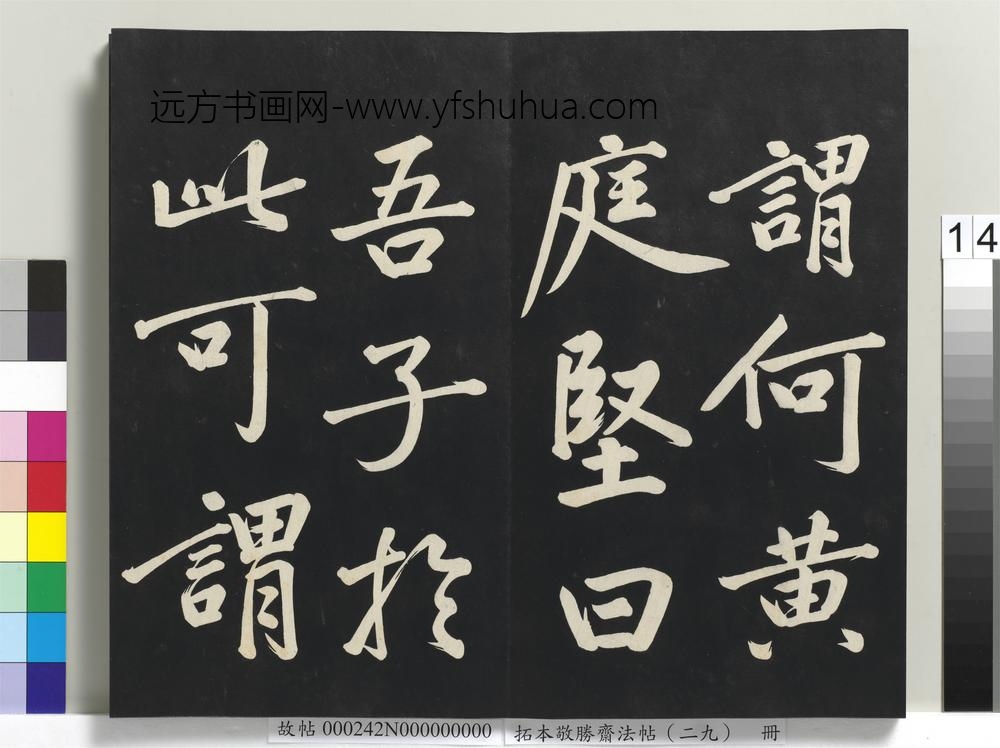 远方书画网-www.yfshuhua.com
謂何黄
庭堅曰
吾子於
此可謂
14
故帖 000242N000000000
拓本敬勝齋法帖（二九） 冊